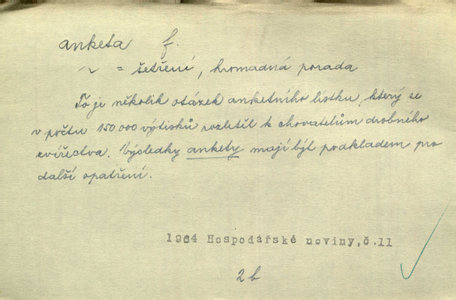 anketa f.
~ = šetření, hromadná porada
To je několik otázek anketního lístku, který se
v počtu 150 000 výtisků rozletěl k chovatelům drobného
zvířectva. Výsledky ankety mají být podkladem pro
další opatření.
1964 Hospodářské noviny, č.11
2b